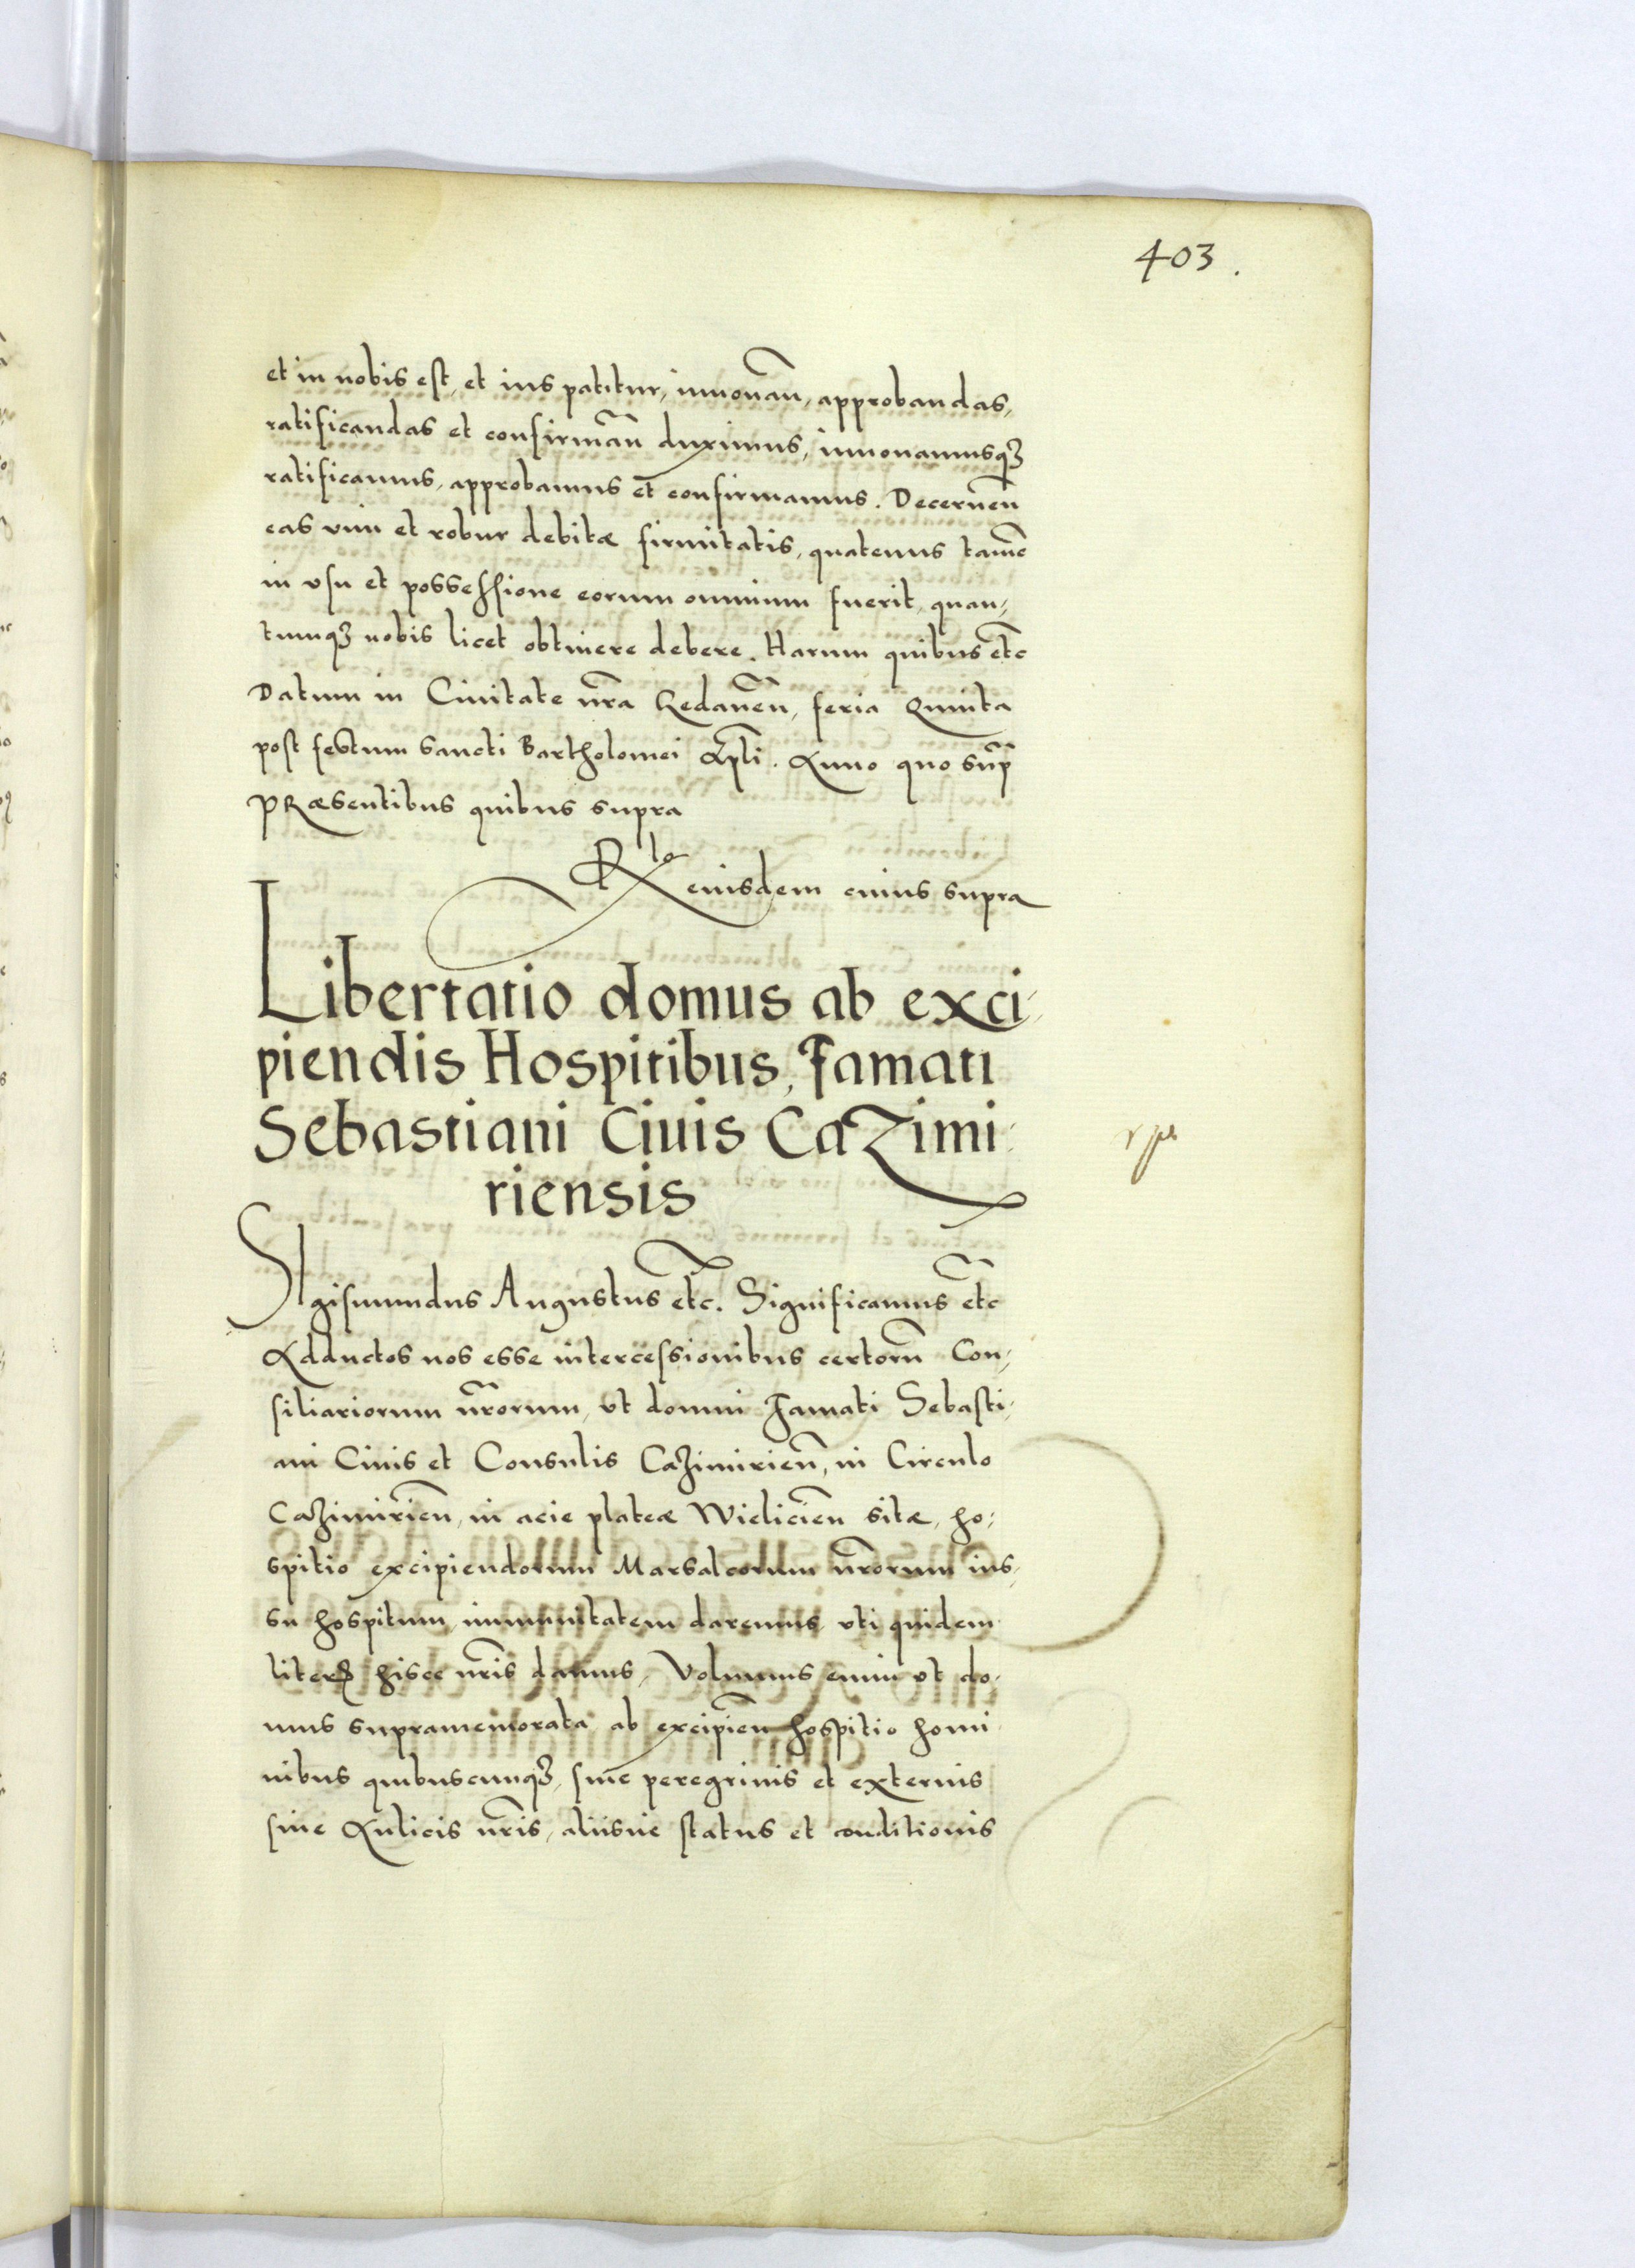 403.
et in nobis est, et ius patitur, innouañ, approbandas,
ratificandas et confirmãn duximus, innouamusqȝ
ratificamus, approbamus et confirmamus. Decerneñ
eas vim et robur debitæ firmitatis, quatenus tamẽ
in vsu et possessione eorum omnium fuerit, quan,
tumqȝ nobis licet obtinere debere. Harum quibus etc̃
Datum in Ciuitate nr̃a Gedaneñ, feria Quinta
post festum Sancti Bartholomei Apl̃i. Anno quo sup̃
PRæsentibus quibus supra
Rlo eiusdem cuius supra
Libertatio domus ab exci,
piendis Hospitibus, Famati
Sebastiani Ciuis CaZimi,
riensis
SIgismundus Augustus etc̃. Significamus etc̃
Adductos nos esse intercessionibus certorũ Con,
siliariorum nr̃orum, vt domui Famati Sebasti,
ani Ciuis et Consulis Cazimirieñ, in Circulo
Cazimirieñ, in acie plateæ Wielicieñ sitæ, ho,
spitio excipiendorum Marsalcorum nr̃orum ius,
su hospitum, immunitatem daremus, vti quidem
literȝ hisce nr̃is damus, Volumus enim vt do,
mus supramemorata ab excipieñ hospitio homi,
nibus quibuscumqȝ, siue peregrinis et externis
siue Aulicis nr̃is, aliisue status et conditionis